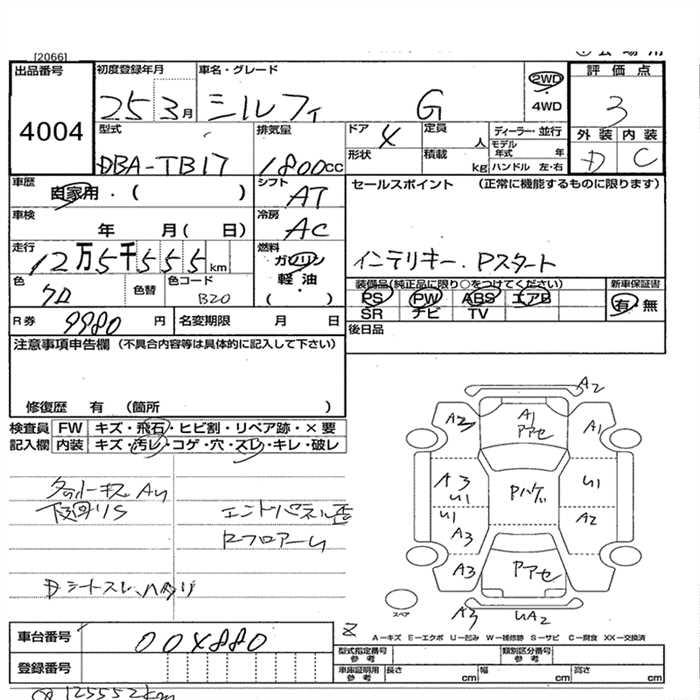 [2066]
出品番号
4004
初度登録年月
25 3月
車名・グレード
シルフィ G
2WD
4WD
評価点
3
外装 内装
D C
型式
DBA-TB17
排気量
1800cc
ドア 4
形状
定員 人
積載 kg
ディーラー・並行
モデル年式 年
ハンドル 左・右
車歴
自家用・( )
シフト
AT
セールスポイント (正常に機能するものに限ります)
インテリキー. Pスタート
車検
年 月( 日)
冷房
AC
走行
12万5千555km
燃料
ガソリン
軽油
・( )
色
クロ
色替
色コード
B20
装備品(純正品に限り○をつけてください)
PS PW ABS エアB
SR ナビ TV
新車保証書
有・無
R券 9980円
名変期限 月 日
後日品
注意事項申告欄 (不具合内容等は具体的に記入して下さい)
修復歴 有 (箇所 )
検査員記入欄
FW キズ・飛石・ヒビ割・リペア跡・×要
内装 キズ・汚レ・コゲ・穴・スレ・キレ・破レ
下廻りS
エンドパネル歪
Rフロアーム
Dシートスレ、ハガリ
A2
A2 A1 アアセ A1
A3 U1 Pハゲ U1
U1 A3 A2
A3 アアセ
A3 UA2
スペア
A－キズ E－エクボ U－凹み W－補修跡 S－サビ C－腐食 XX－交換済
車台番号
004880
登録番号
型式指定番号 参考
類別区分番号 参考
車庫証明用 参考
長さ cm
幅 cm
高さ cm
125552km